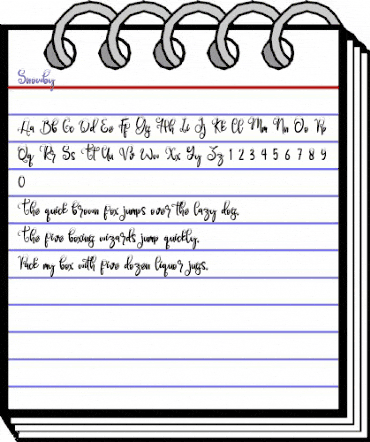 Snowby
Aa Bb Cc Dd Ee Ff Gg Hh Ii Jj Kk Ll Mm Nn Oo Pp
Qq Rr Ss Tt Uu Vv Ww Xx Yy Zz 1 2 3 4 5 6 7 8 9
0
The quick brown fox jumps over the lazy dog.
The five boxing wizards jump quickly.
Pack my box with five dozen liquor jugs.